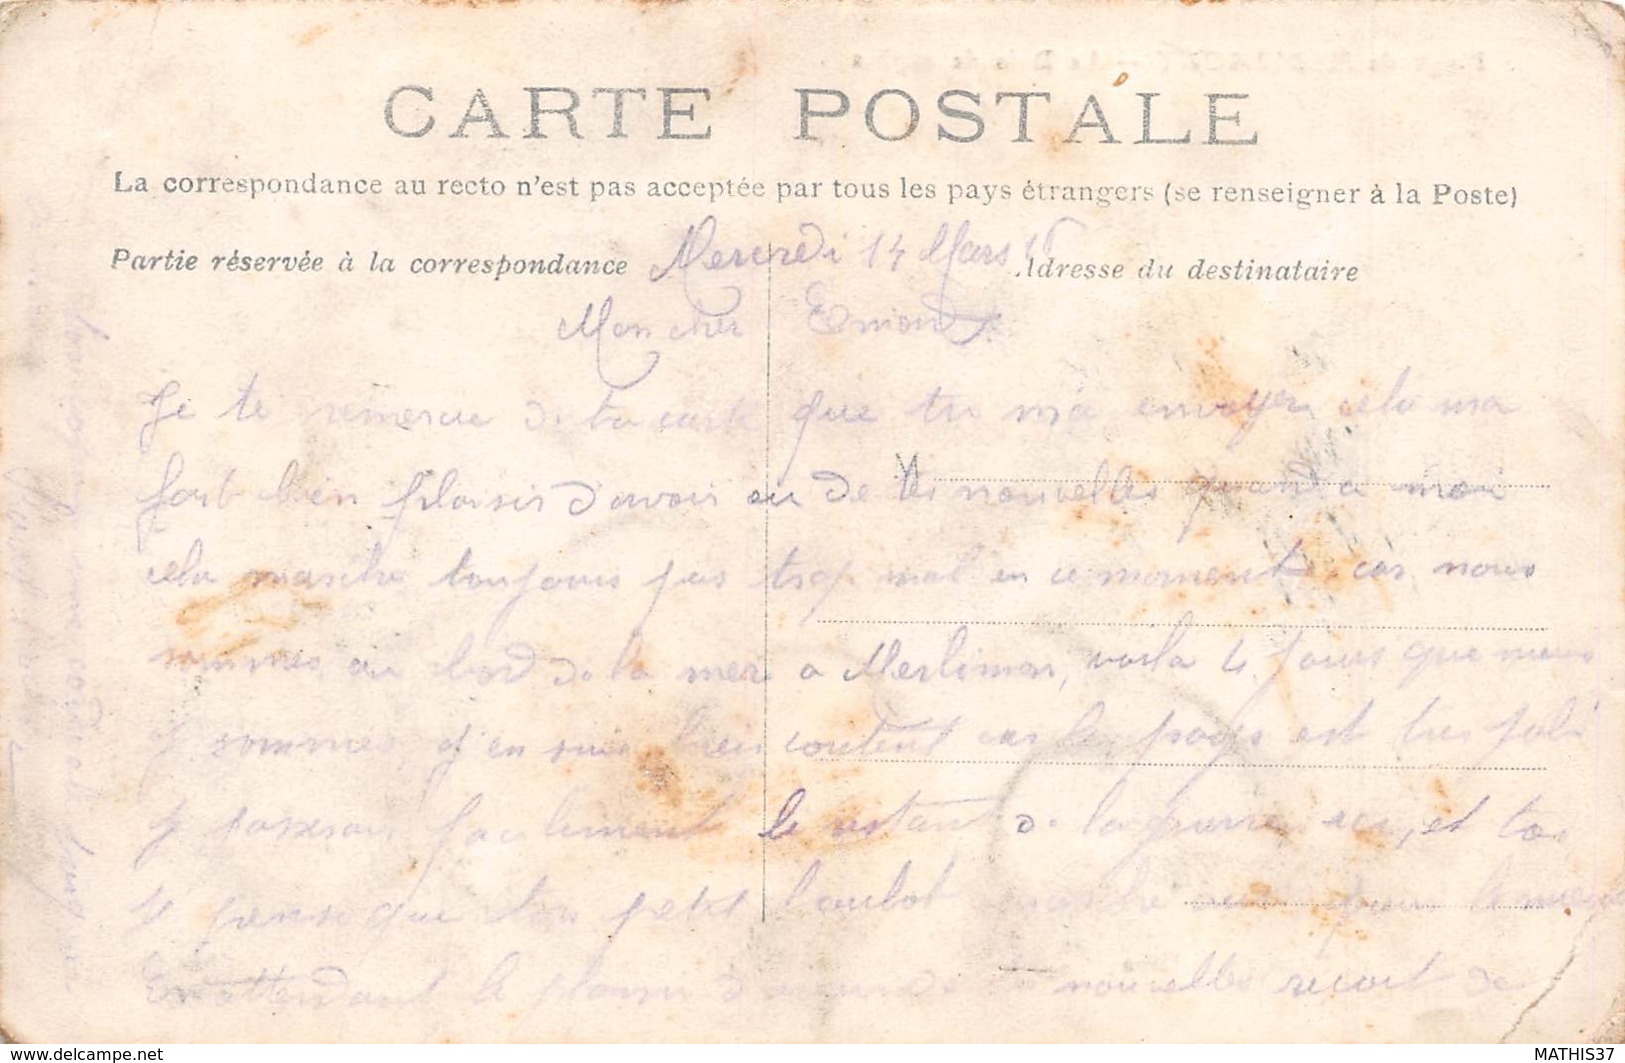 CARTE POSTALE
La correspondance au recto n'est pas acceptée par tous les pays étrangers (se renseigner à la Poste)
Partie réservée à la correspondance
Adresse du destinataire
Mercredi 14 Mars
Mon cher Emond
Je te remercie de ta carte que tu m'a envoyer, cela ma
fort bien plaisir d'avoir eu de tes nouvelles quand a moi
cela marche toujours pas trop mal en ce moment car nous
sommes au bord de la mer a Merlimon, voila 4 jours que nous
y sommes, j'en suis bien content car le pays est tres joli
facilement le restant de la guerre ici, et toi
je pense que ton petit boulot marche pour le mieux
En attendant le plaisir de tes nouvelles recoit de
ton une cordiale
www.delcampe.net
MATHIS37